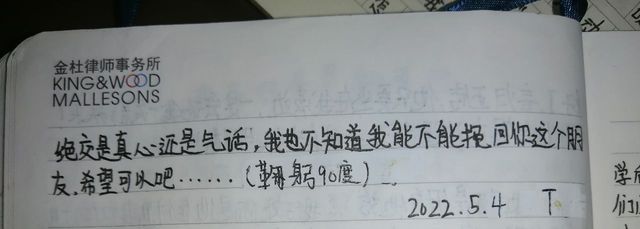 金杜律师事务所
KING&WOOD
MALLESONS
绝交是真心还是气话，我也不知道我能不能挽回你这个朋
友，希望可以吧……（鞠躬90度）。
2022.5.4 T